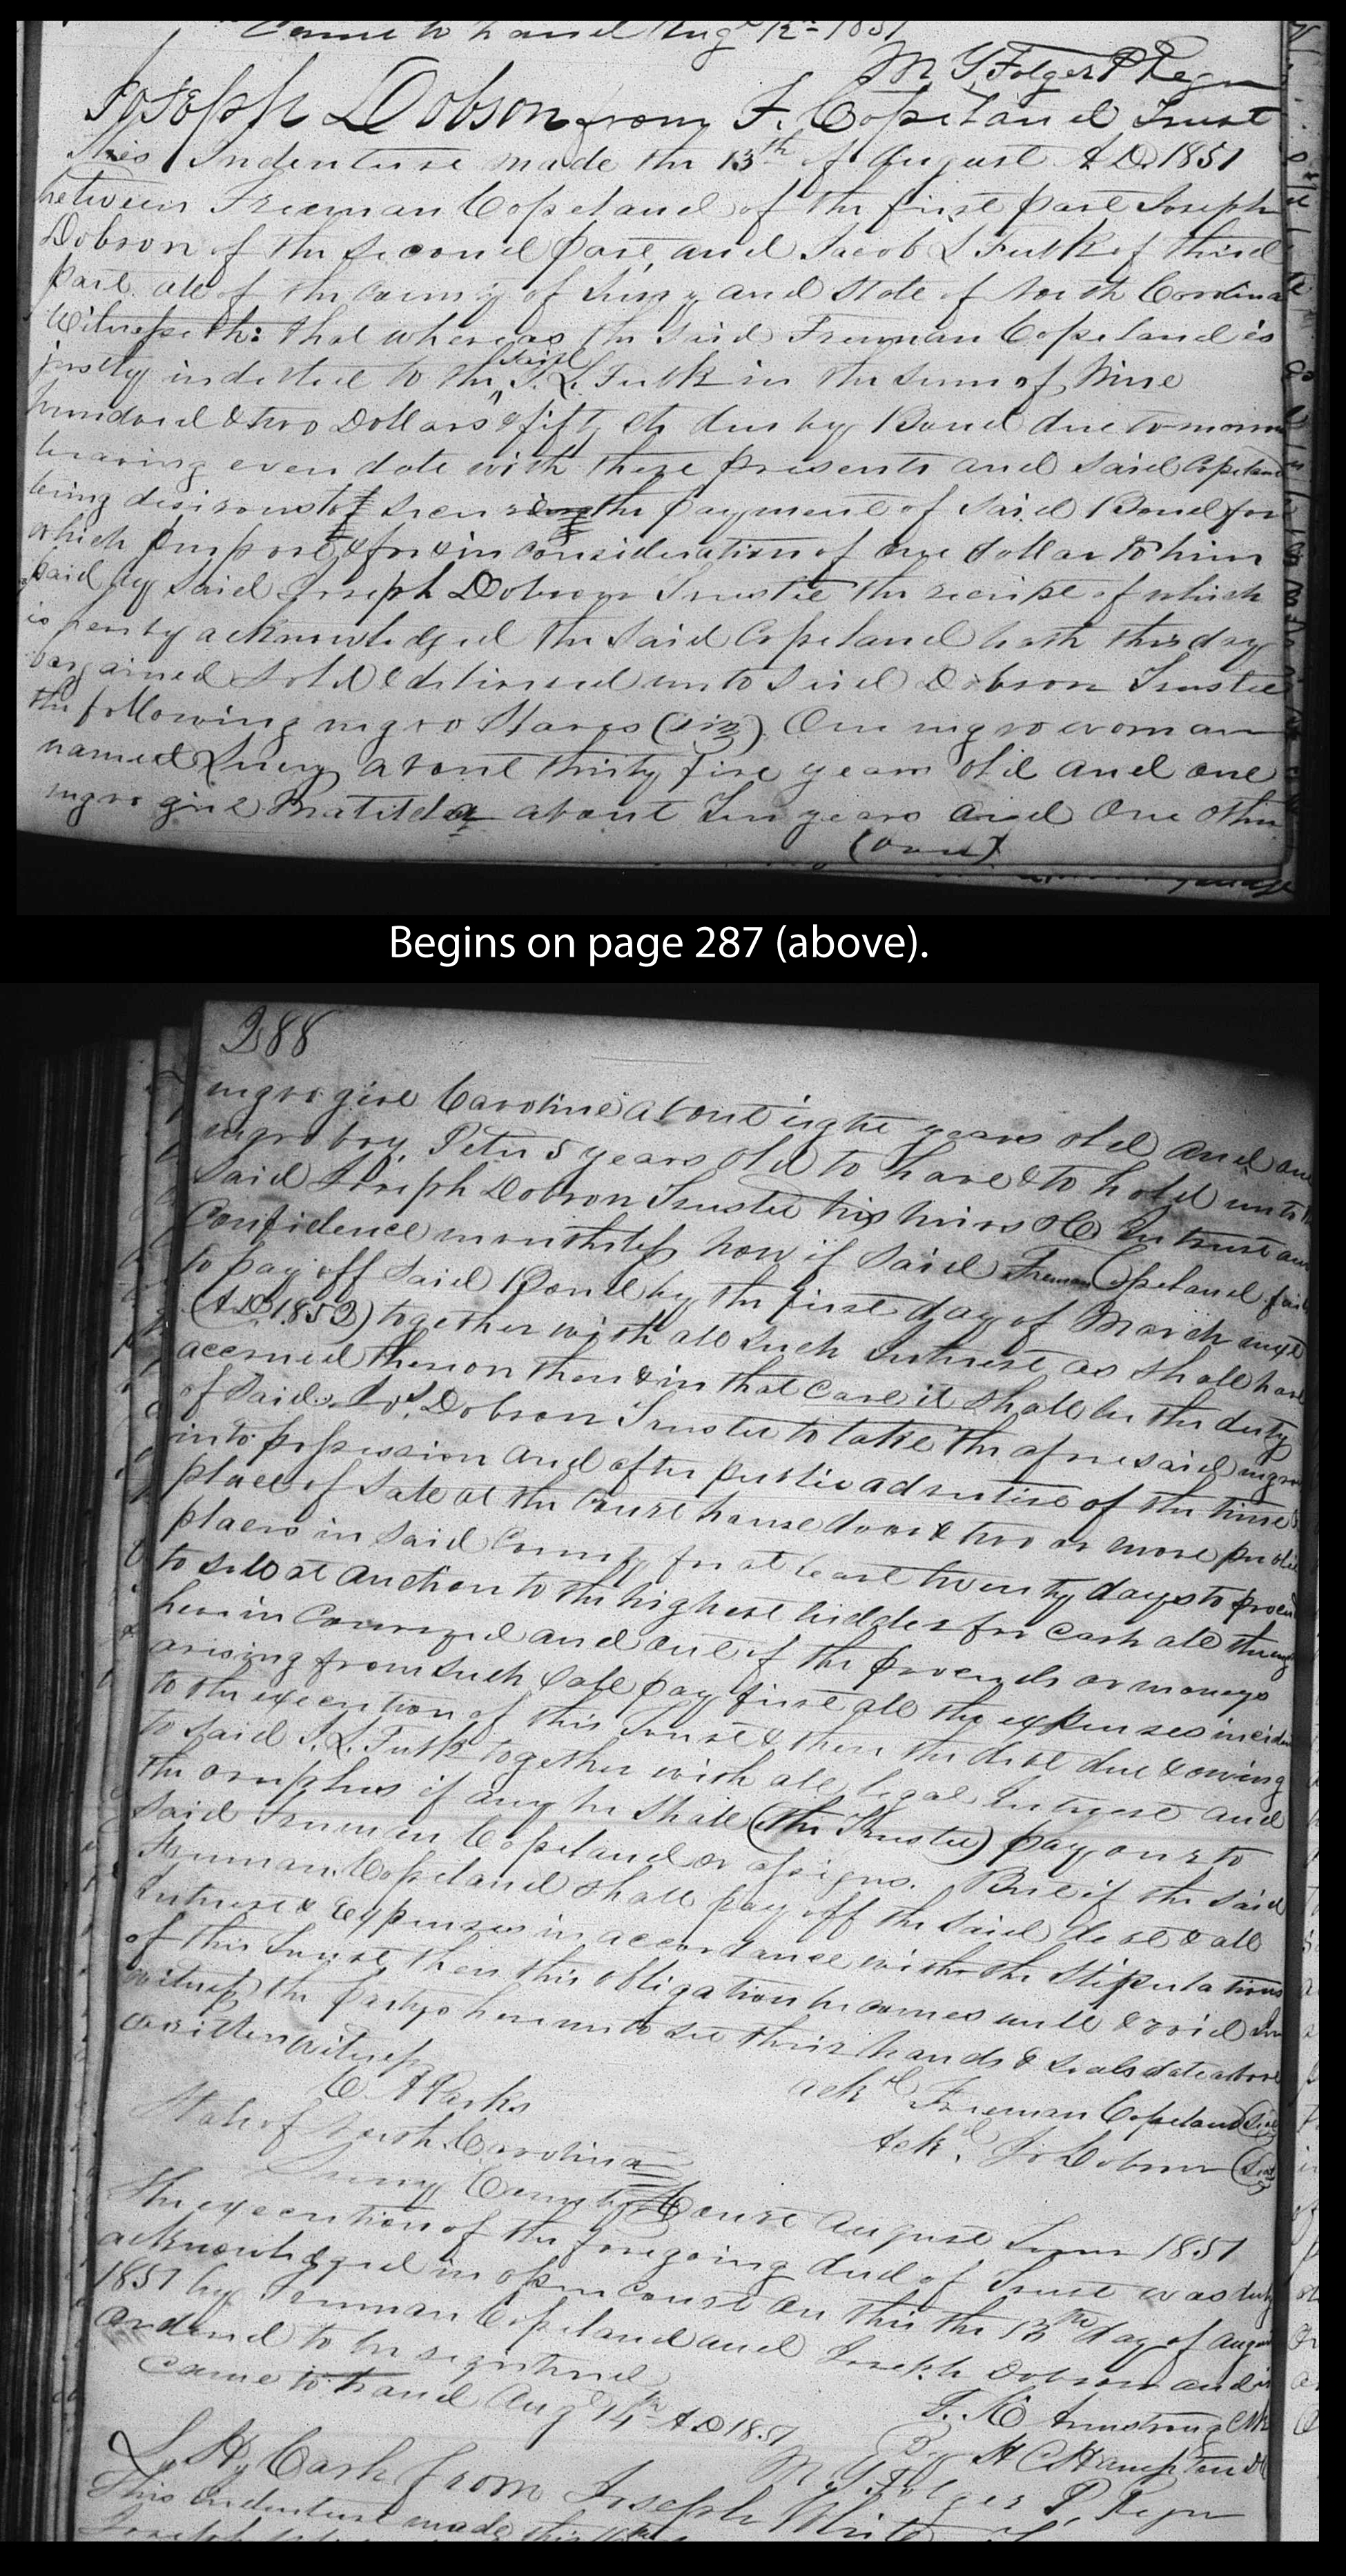 Came to hand Augt 12th 1851
M. Y. Folger P Regr
Joseph Dobson from F. Copeland Trust
This Indenture made the 13th of August A D. 1851
between Freeman Copeland of the first part Joseph
Dobson of the second part, and Jacob L Fulk of third
part all of the County of Surry and State of North Carolina
Witnesseth: that whereas the said Freeman Copeland is
justly indetted to the said J. L. Fulk in the sum of Nine
hundred & two Dollars & fifty cts due by Bond due
bearing even date with these presents and said Copeland
being desirous to secure the payment of said Bond for
which purpose & for & in consideration of one dollar to him
paid by said Joseph Dobson Trustee the receipt of which
is hereby acknowledged the said Copeland hath this day
bargained sold & delivered unto said Dobson Trustee
the following negro Slaves (viz) One negro woman
named Lucy about thirty five years old and one
negro girl Matilda about Ten years and One other
(over)
Begins on page 287 (above).
288
negro girl Caroline about eight years old and one
negro boy, Peter 5 years old to have & to hold unto the
said Joseph Dobson Trustee his heirs &C In trust and
Confidence nevertheless now if said Freeman Copeland fail
to pay off said Bond by the first day of March next
(A.D. 1852) together with all such Interest as shall have
accrued thereon then & in that case it shall be the duty
of said Jos. Dobson Trustee to take the aforesaid negroes
into possession and after public advertise of the time &
place of sale at the Court house door & two or more public
places in said County for at least twenty days to proceed
to sell at auction to the highest bidder for cash all the
herein conveyed and out of the proceeds or moneys
arising from such sale pay first all the expenses incident
to the execution of this Trust & then the debt due & owing
to said J. L. Fulk together with all legal Interest and
the surplus if any he shall (the Trustee) pay over to
said Freeman Copeland or assigns. But if the said
Freeman Copeland shall pay off the said debt & all
Interest & Expenses in accordance with the stipulations
of this Trust then this obligation becomes null & void In
witness the partys hereunto set their hands & seals date above
written witness
C. A Parks ackd Freeman Copeland (Seal)
Ackd. Jo Dobson (Seal)
State of North Carolina
Surry County Court August Term 1851
The execution of the foregoing deed of Trust was duly
acknowledged in open court on this the 13th day of August
1851 by Freeman Copeland and Joseph Dobson and is
ordered to be registered
F. K Armstrong Clk
By H C Hampton DC
Came to hand Augt 14th A D 1851
M Y Folger P. Regr
L. H. Cash from Joseph White
This Indenture made this
Joseph